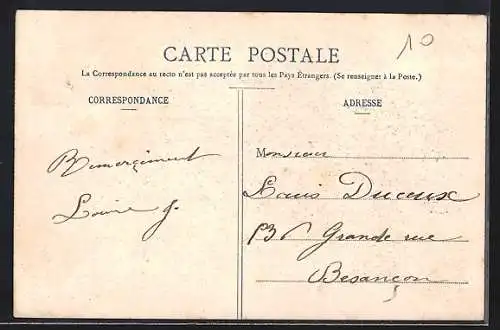 CARTE POSTALE
10
La Correspondance au recto n'est pas acceptée par tous les Pays Étrangers. (Se renseigner à la Poste.)
CORRESPONDANCE
Remerciment
Louise J.
ADRESSE
Monsieur
Louis Duceux
Grande rue
Besançon